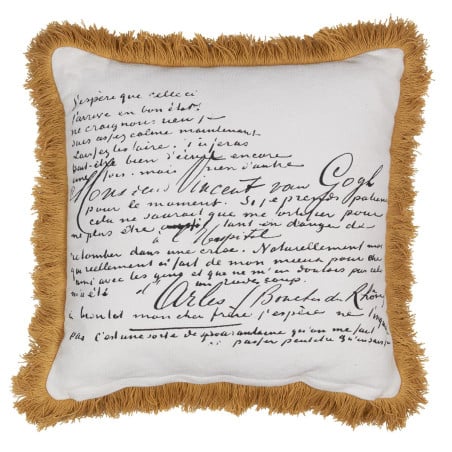 J'espère que celle ci
t'arrive en bon état.
ne craignons rien je
suis assez calme maintenant
Laissez les faire. Tu feras
peut-être bien d'écrire encore
une fois. mais rien d'autre
Monsieur Vincent van Gogh
pour le moment. Si je prends patience
cela ne saurait que me fortifier pour
ne plus être tant en danger de
à l'Hospital
retomber dans une crise. Naturellement moi
qui réellement ai fait de mon mieux pour être
ami avec les gens et que ne m'en doutais pas cela
m'a été un rude coup.
d'Arles (Bouches du Rhône
à bientôt mon cher frère j'espère ne
pas c'est une sorte de quarantaine qu'on me fait
passer peut être qu'en sais je